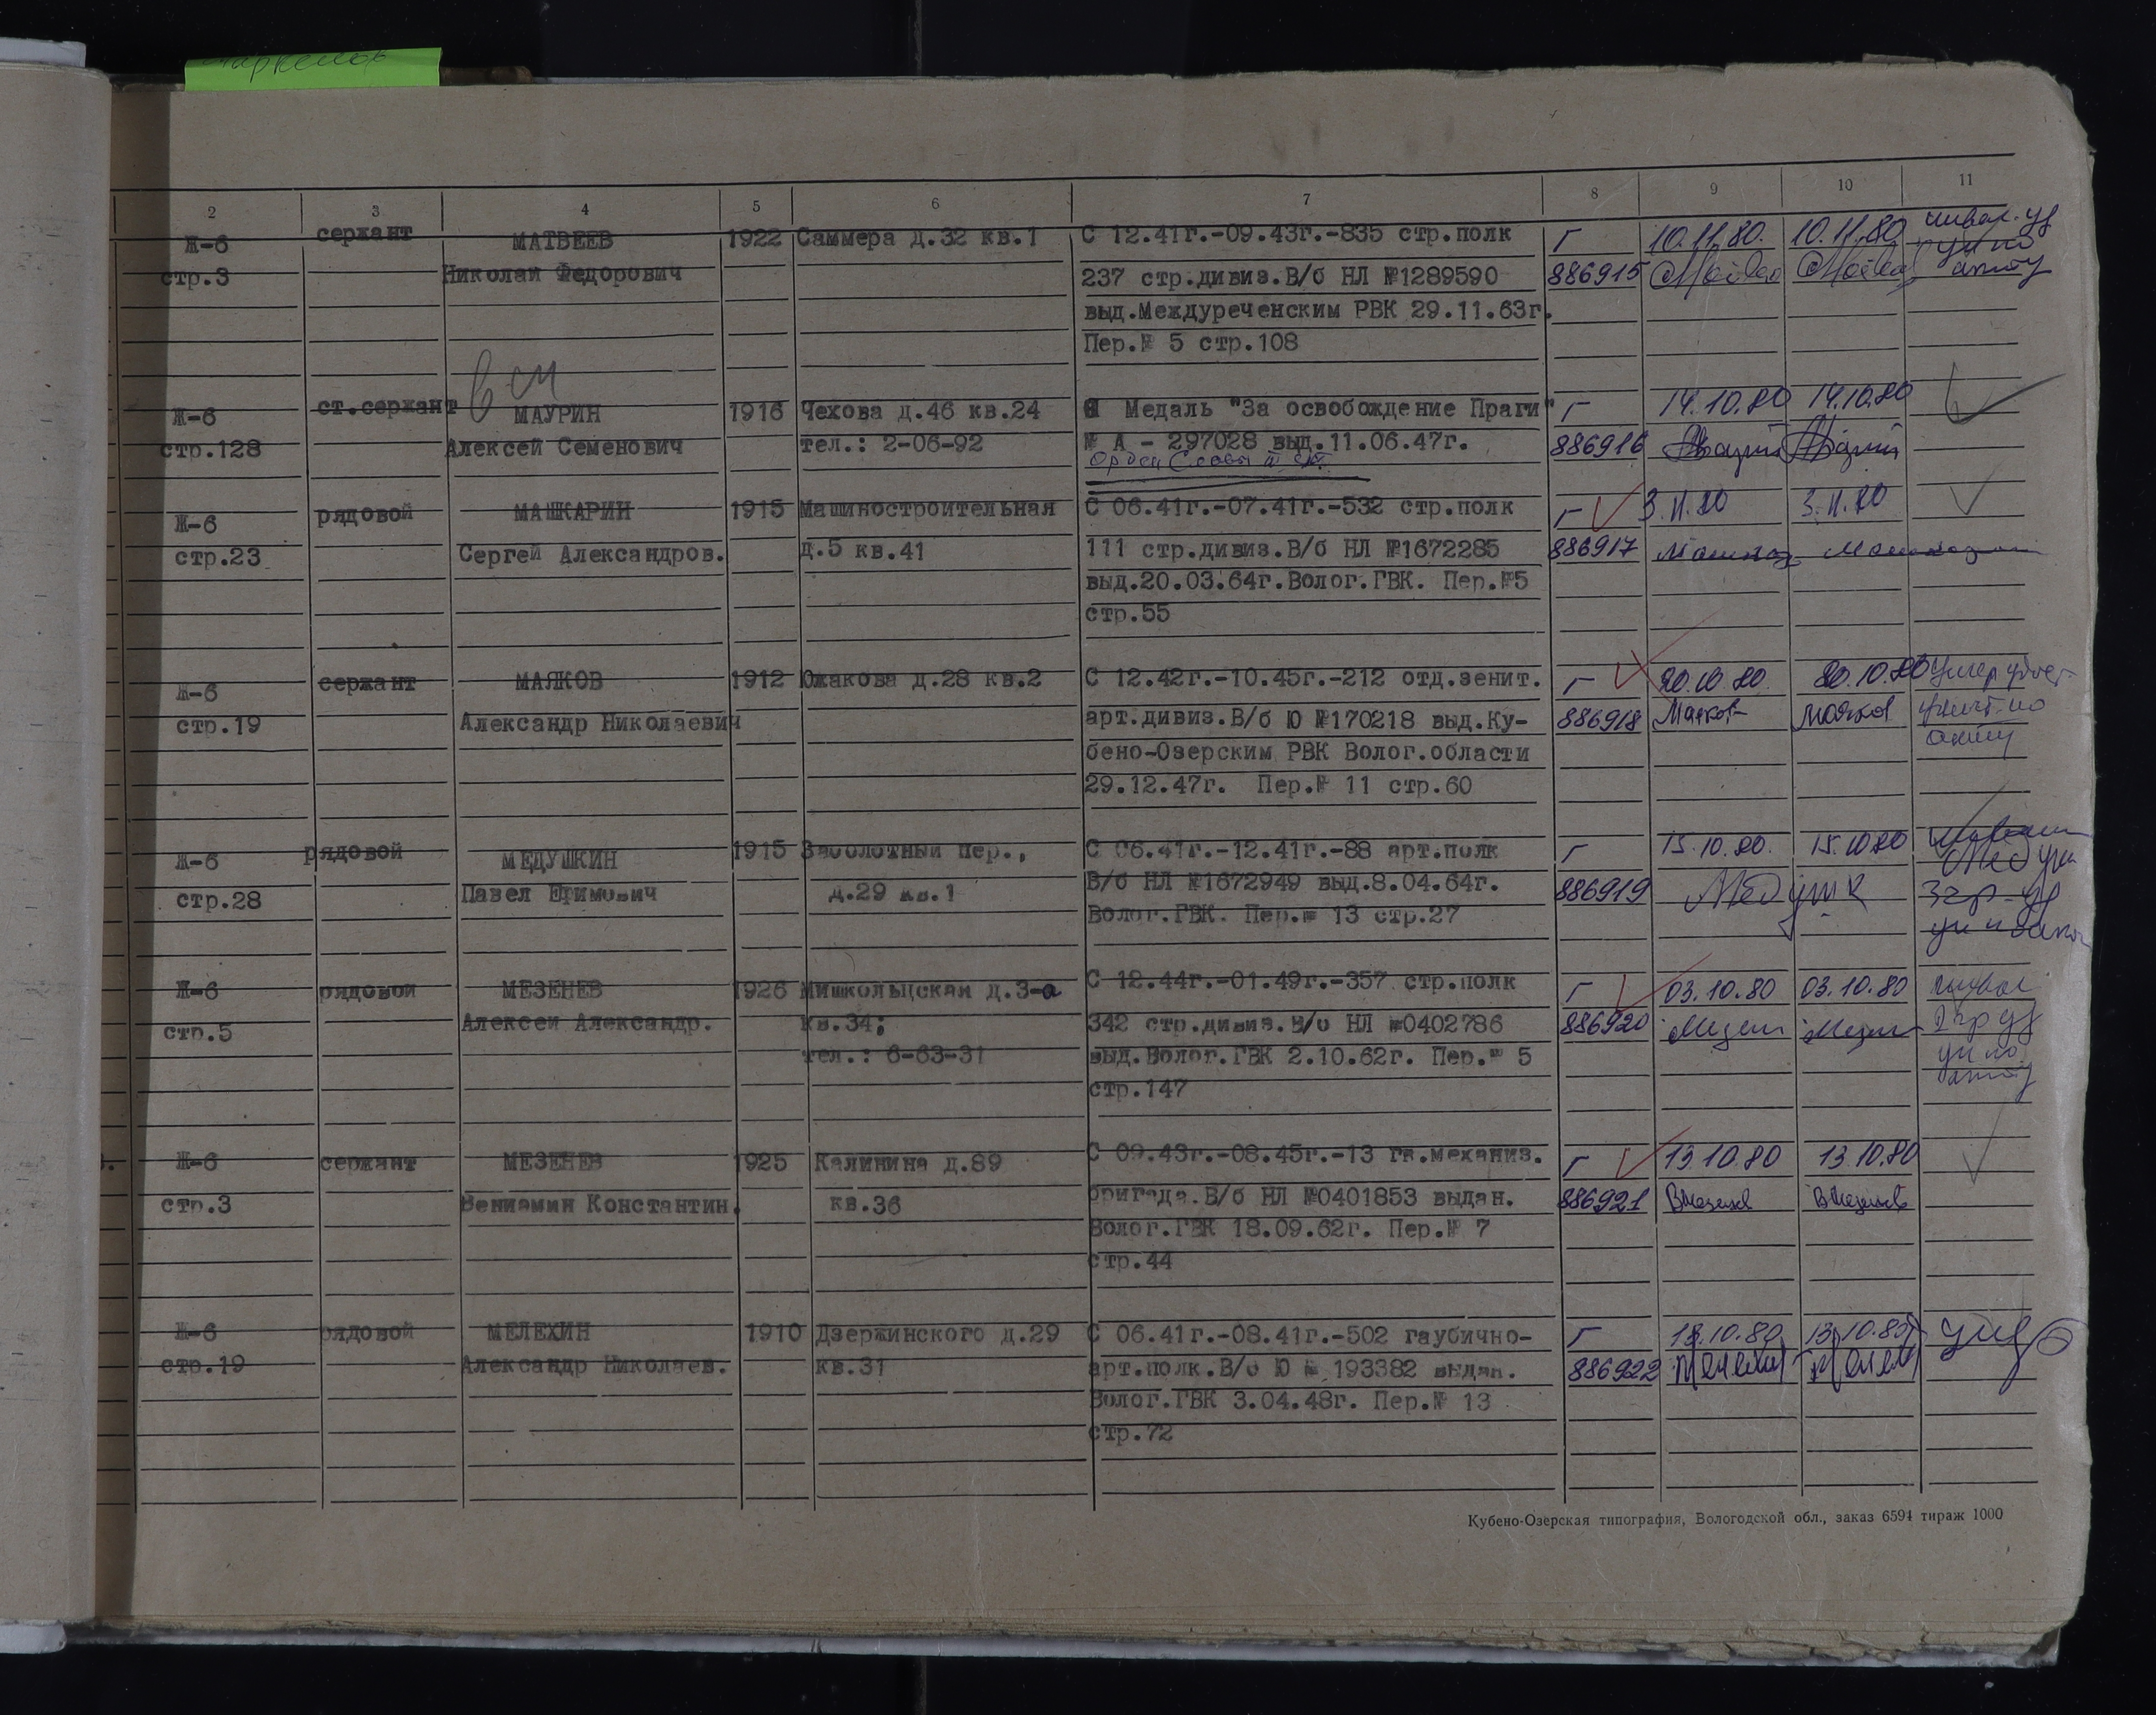 2 3 4 5 6 7 8 9 10 11
Ж-6 сержант МАТВЕЕВ 1922 Саммера д.32 кв.1 С 12.41г.-09.43г.-835 стр.полк Г 10.11.80. 10.11.80
стр.3 Николай Федорович 237 стр.дивиз.В/б НЛ №1289590 886915
выд.Междуреченским РВК 29.11.63г.
Пер.№ 5 стр.108
Ж-6 ст.сержант МАУРИН 1916 Чехова д.46 кв.24 Медаль "За освобождение Праги" Г 14.10.80 14.10.80
стр.128 Алексей Семенович тел.: 2-06-92 № А - 297028 выд.11.06.47г. 886916
Орден Славы III ст.
Ж-6 рядовой МАШКАРИН 1915 Машиностроительная С 06.41г.-07.41г.-532 стр.полк Г 3.11.80 3.11.80
стр.23 Сергей Александров. д.5 кв.41 111 стр.дивиз.В/б НЛ №1672285 886917
выд.20.03.64г.Волог.ГВК. Пер.№5
стр.55
Ж-6 сержант МАЯКОВ 1912 Южакова д.28 кв.2 С 12.42г.-10.45г.-212 отд.зенит. Г 20.10.80. 20.10.80
стр.19 Александр Николаевич арт.дивиз.В/б Ю №170218 выд.Ку- 886918 Маяков Маяков
бено-Озерским РВК Волог.области
29.12.47г. Пер.№ 11 стр.60
Ж-6 рядовой МЕДУШКИН 1915 Заболотный пер., С 06.41г.-12.41г.-88 арт.полк Г 15.10.80. 15.10.80
стр.28 Павел Ефимович д.29 кв.1 В/б НЛ №1672949 выд.8.04.64г. 886919
Волог.ГВК. Пер.№ 13 стр.27
Ж-6 рядовой МЕЗЕНЕВ 1926 Мишкольцская д.3-а С 12.44г.-01.49г.-357 стр.полк Г 03.10.80 03.10.80
стр.5 Алексей Александр. кв.34; 342 стр.дивиз.В/б НЛ №0402786 886920
тел.: 6-63-31 выд.Волог.ГВК 2.10.62г. Пер.№ 5
стр.147
Ж-6 сержант МЕЗЕНЕВ 1925 Калинина д.89 С 09.43г.-08.45г.-13 гв.механиз. Г 13.10.80 13.10.80
стр.3 Вениамин Константин. кв.36 бригада.В/б НЛ №0401853 выдан. 886921
Волог.ГВК 18.09.62г. Пер.№ 7
стр.44
Ж-6 рядовой МЕЛЕХИН 1910 Дзержинского д.29 С 06.41г.-08.41г.-502 гаубично- Г 13.10.80 13.10.80
стр.19 Александр Николаев. кв.31 арт.полк.В/б Ю № 193382 выдан. 886922
Волог.ГВК 3.04.48г. Пер.№ 13
стр.72
Кубено-Озерская типография, Вологодской обл., заказ 6594 тираж 1000